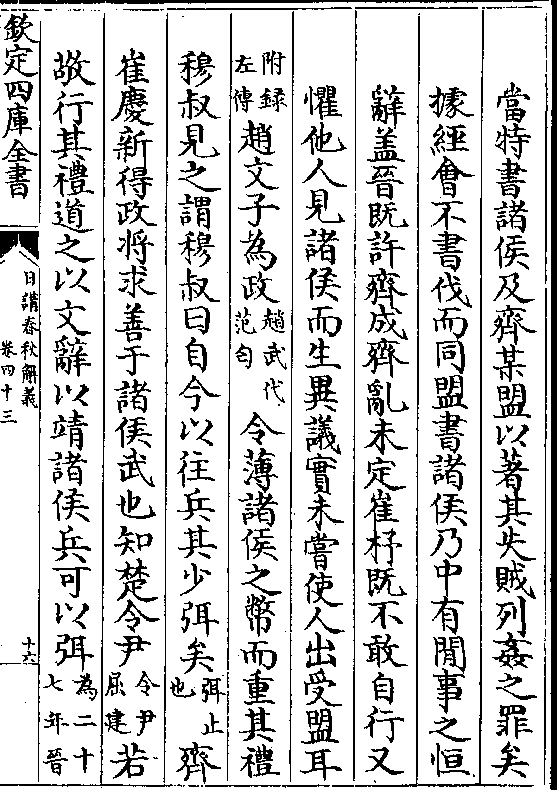 當特書諸侯及齊某盟以著其失賊列姦之罪矣
據經會不書伐而同盟書諸侯乃中有間事之恒
辭盖晉既許齊成齊亂未定崔杼既不敢自行又
懼他人見諸侯而生異議實未嘗使人出受盟耳
附録左傳趙文子為政趙武代范匄令薄諸侯之幣而重其禮
穆叔見之謂穆叔曰自今以往兵其少弭矣弭止也齊
崔慶新得政将求善于諸侯武也知楚令尹令尹屈建若
敬行其禮道之以文辭以靖諸侯兵可以弭為二十七年晉
欽定四庫全書
日講春秋解義
卷四十三
十六